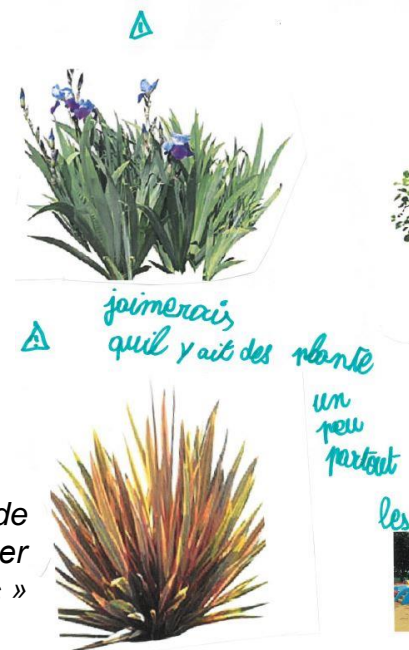 jaimerais
quil y ait des plante
un
peu
partout
les
de
er
»